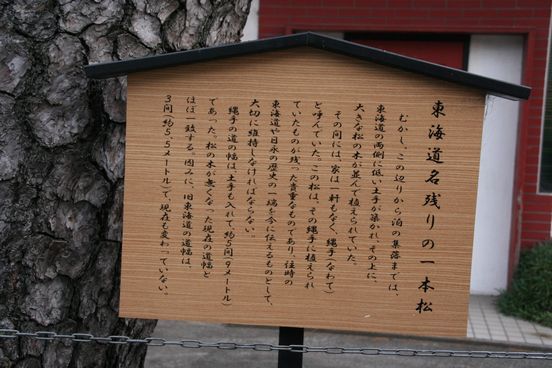 東海道名残りの一本松
むかし、この辺りから泊の集落までは、
東海道の両側に低い土手が築かれ、その上に、
大きな松の木が並んで植えられていた。
その間には、家は一軒もなく、縄手(なわて)
と呼んでいた。この松は、その縄手に植えられ
ていたものが残った貴重なものであり、往時の
東海道や日永の歴史の一端を今に伝えるものとして、
大切に維持しなければならない。
縄手の道の幅は土手も入れて、約5間(9メートル)
であった。松の木が無くなった現在の道幅と
ほぼ一致する。因みに、旧東海道の道幅は、
3間(約5.5メートル)で、現在も変わっていない。